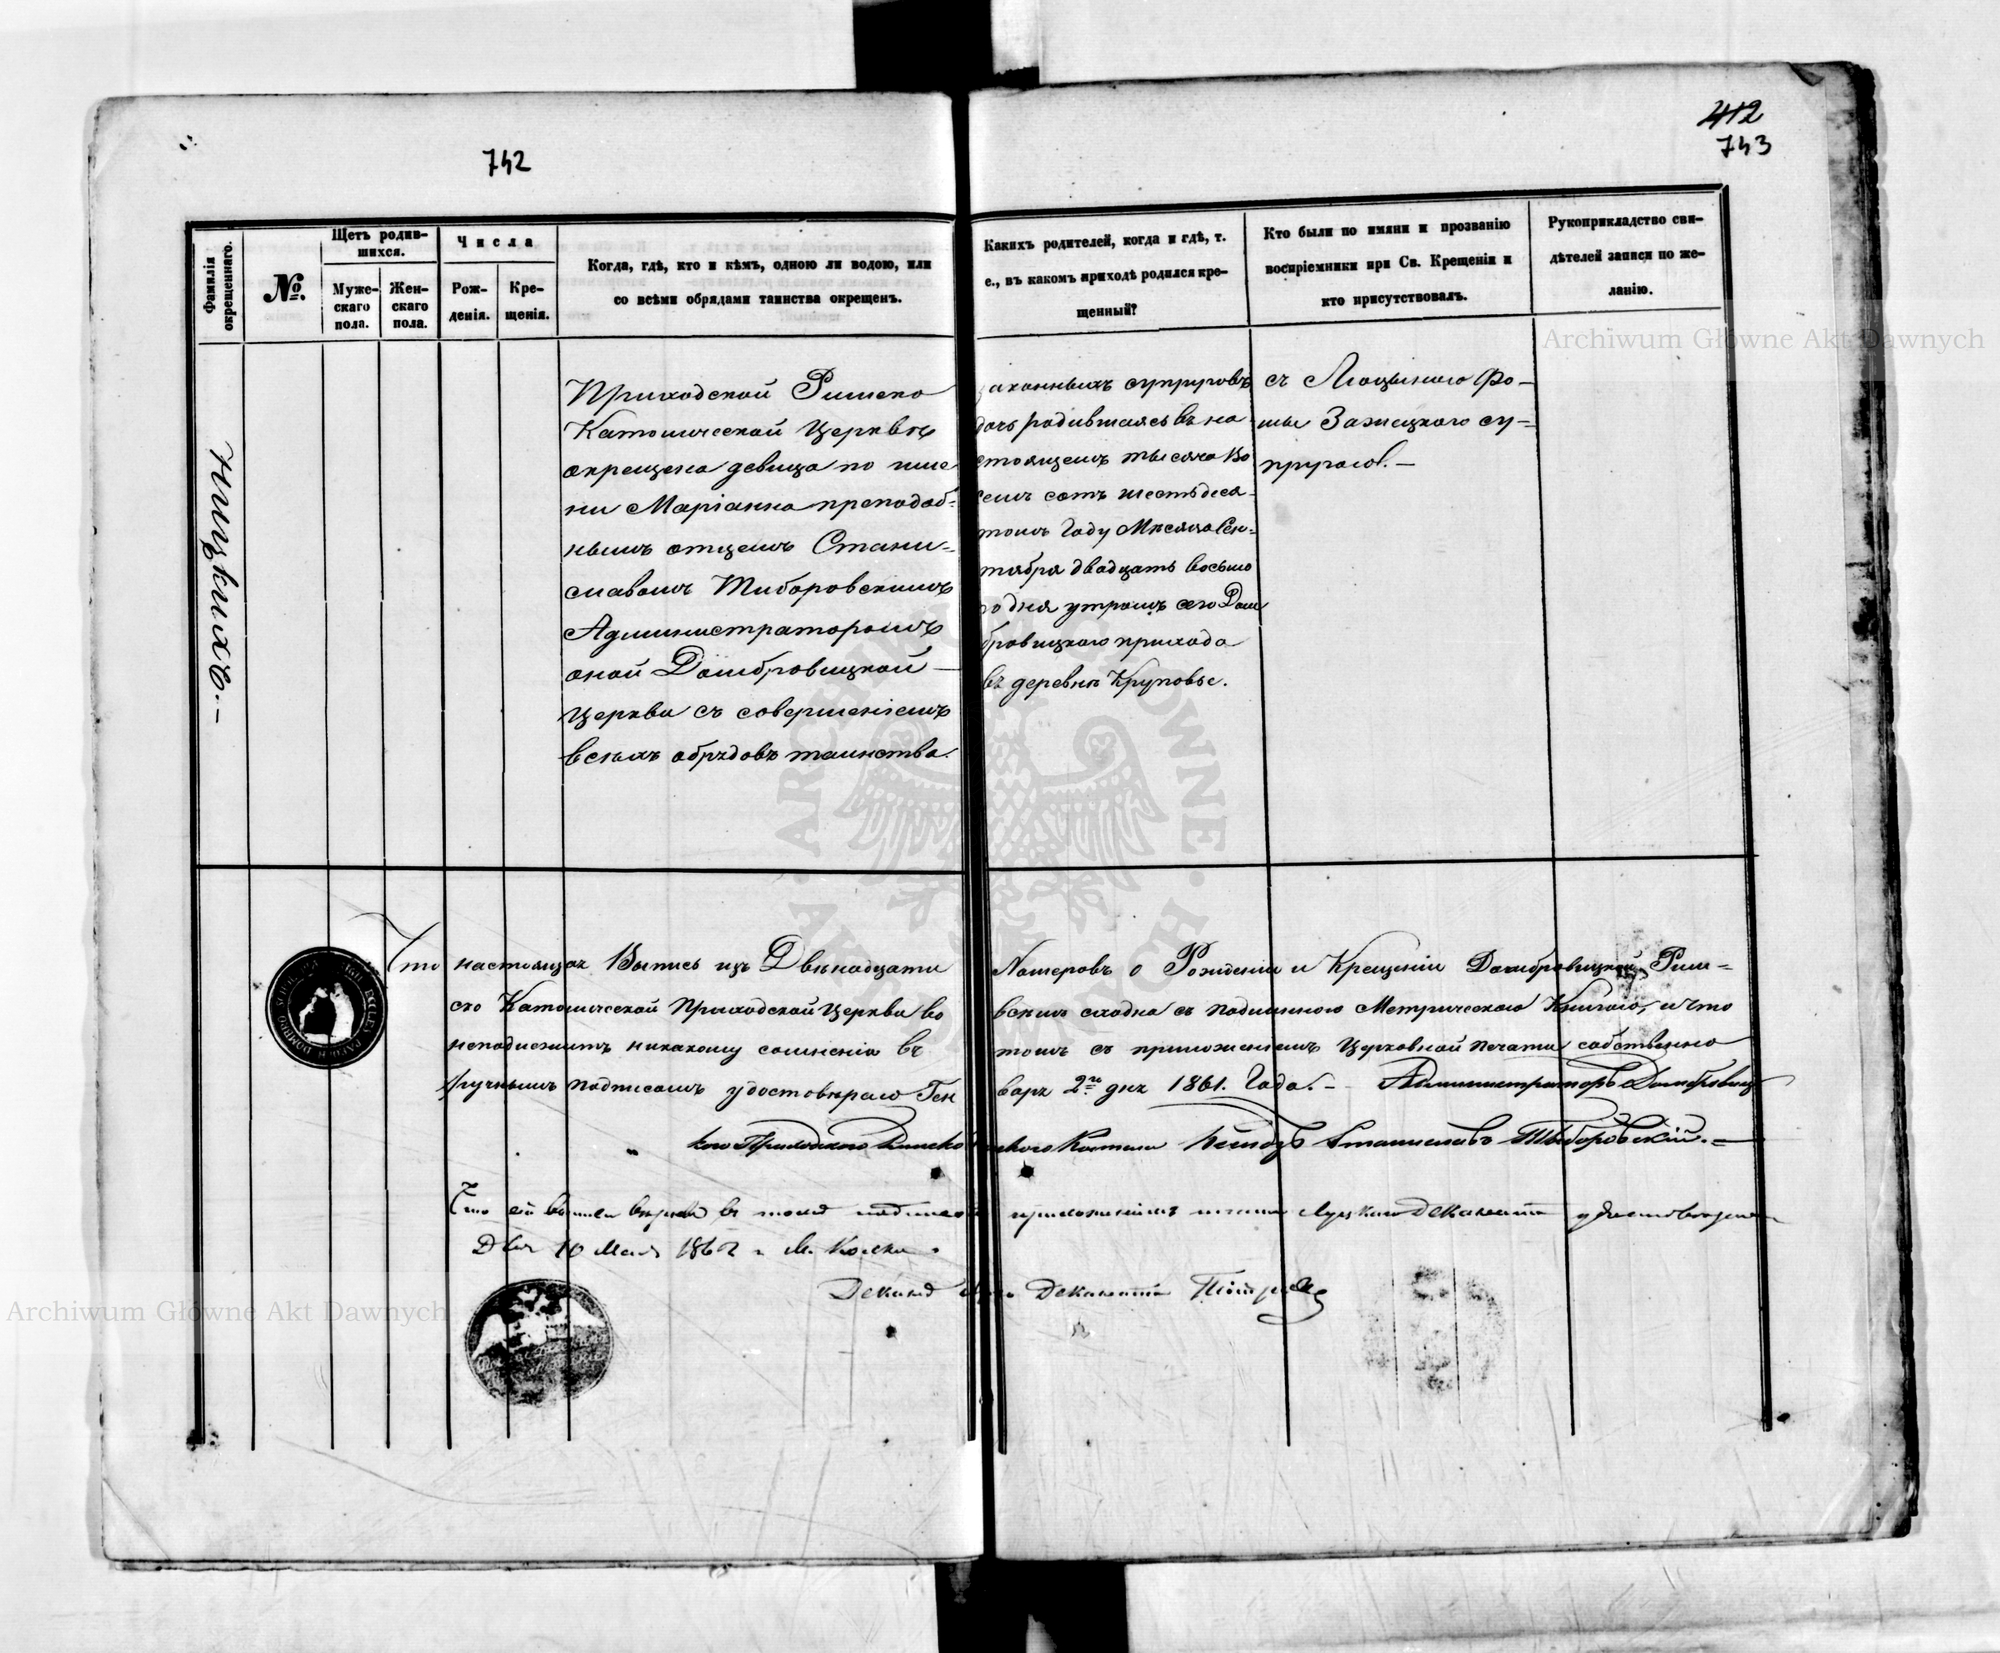 742
412
743
Фамилія окрещеннаго.
№.
Щетъ родившихся.
Мужескаго пола.
Женскаго пола.
Числа
Рожденія.
Крещенія.
Когда, гдѣ, кто и кѣмъ, одною ли водою, или
со всѣми обрядами таинства окрещенъ.
Какихъ родителей, когда и гдѣ, т.
е., въ какомъ приходѣ родился кре-
щенный?
Кто были по имяни и прозванію
воспріемники при Св. Крещеніи и
кто присутствовалъ.
Рукоприкладство сви-
дѣтелей записи по же-
ланію.
ницкихъ.-
Приходской Римско
Католической Церквѣ
окрещена девица по име
ни Маріанна преподоб-
нымъ отцемъ Стани-
славомъ Тиборовскимъ
Администраторомъ
оной Домбровицкой
Церкви съ совершеніемъ
всѣхъ обрядовъ таинства.
законныхъ супруговъ
дочь родившаясь въ на
стоящемъ тысяча во
семъ сотъ шестьдеся-
томъ Году Мѣсяца Сен-
тября двадцать восьмо
го дня утромъ сего Дом
бровицкого прихода
въ деревнѣ Круповье.
съ Люцыною Фо-
мы Зажицкого су-
пругою.-
Что настоящая Выпись изъ Двѣнадцати Номеровъ о Рожденіи и Крещеніи Домбровицкой Рим-
ско Католической Приходской Церкви во всемъ сходна съ подлинною Метрическою Книгою, и что
неподлежитъ никакому сомненію въ томъ съ приложеніемъ Церковной печати собственно
ручнымъ подписомъ удостовѣраю Ген варя 2го дня 1861. Года.- Администраторъ Домбровиц
кого Приходского Римско кого Костела Ксіондзъ Станиславъ Тыборовскій.-
Что сія выпись вѣрна въ томъ подписью приложеніемъ печати Луцкого Деканата удостоверяю
Дня 10 Мая 186 г. М. Колки.
Деканъ Деканата
Archiwum Główne Akt Dawnych
Archiwum Główne Akt Dawnych